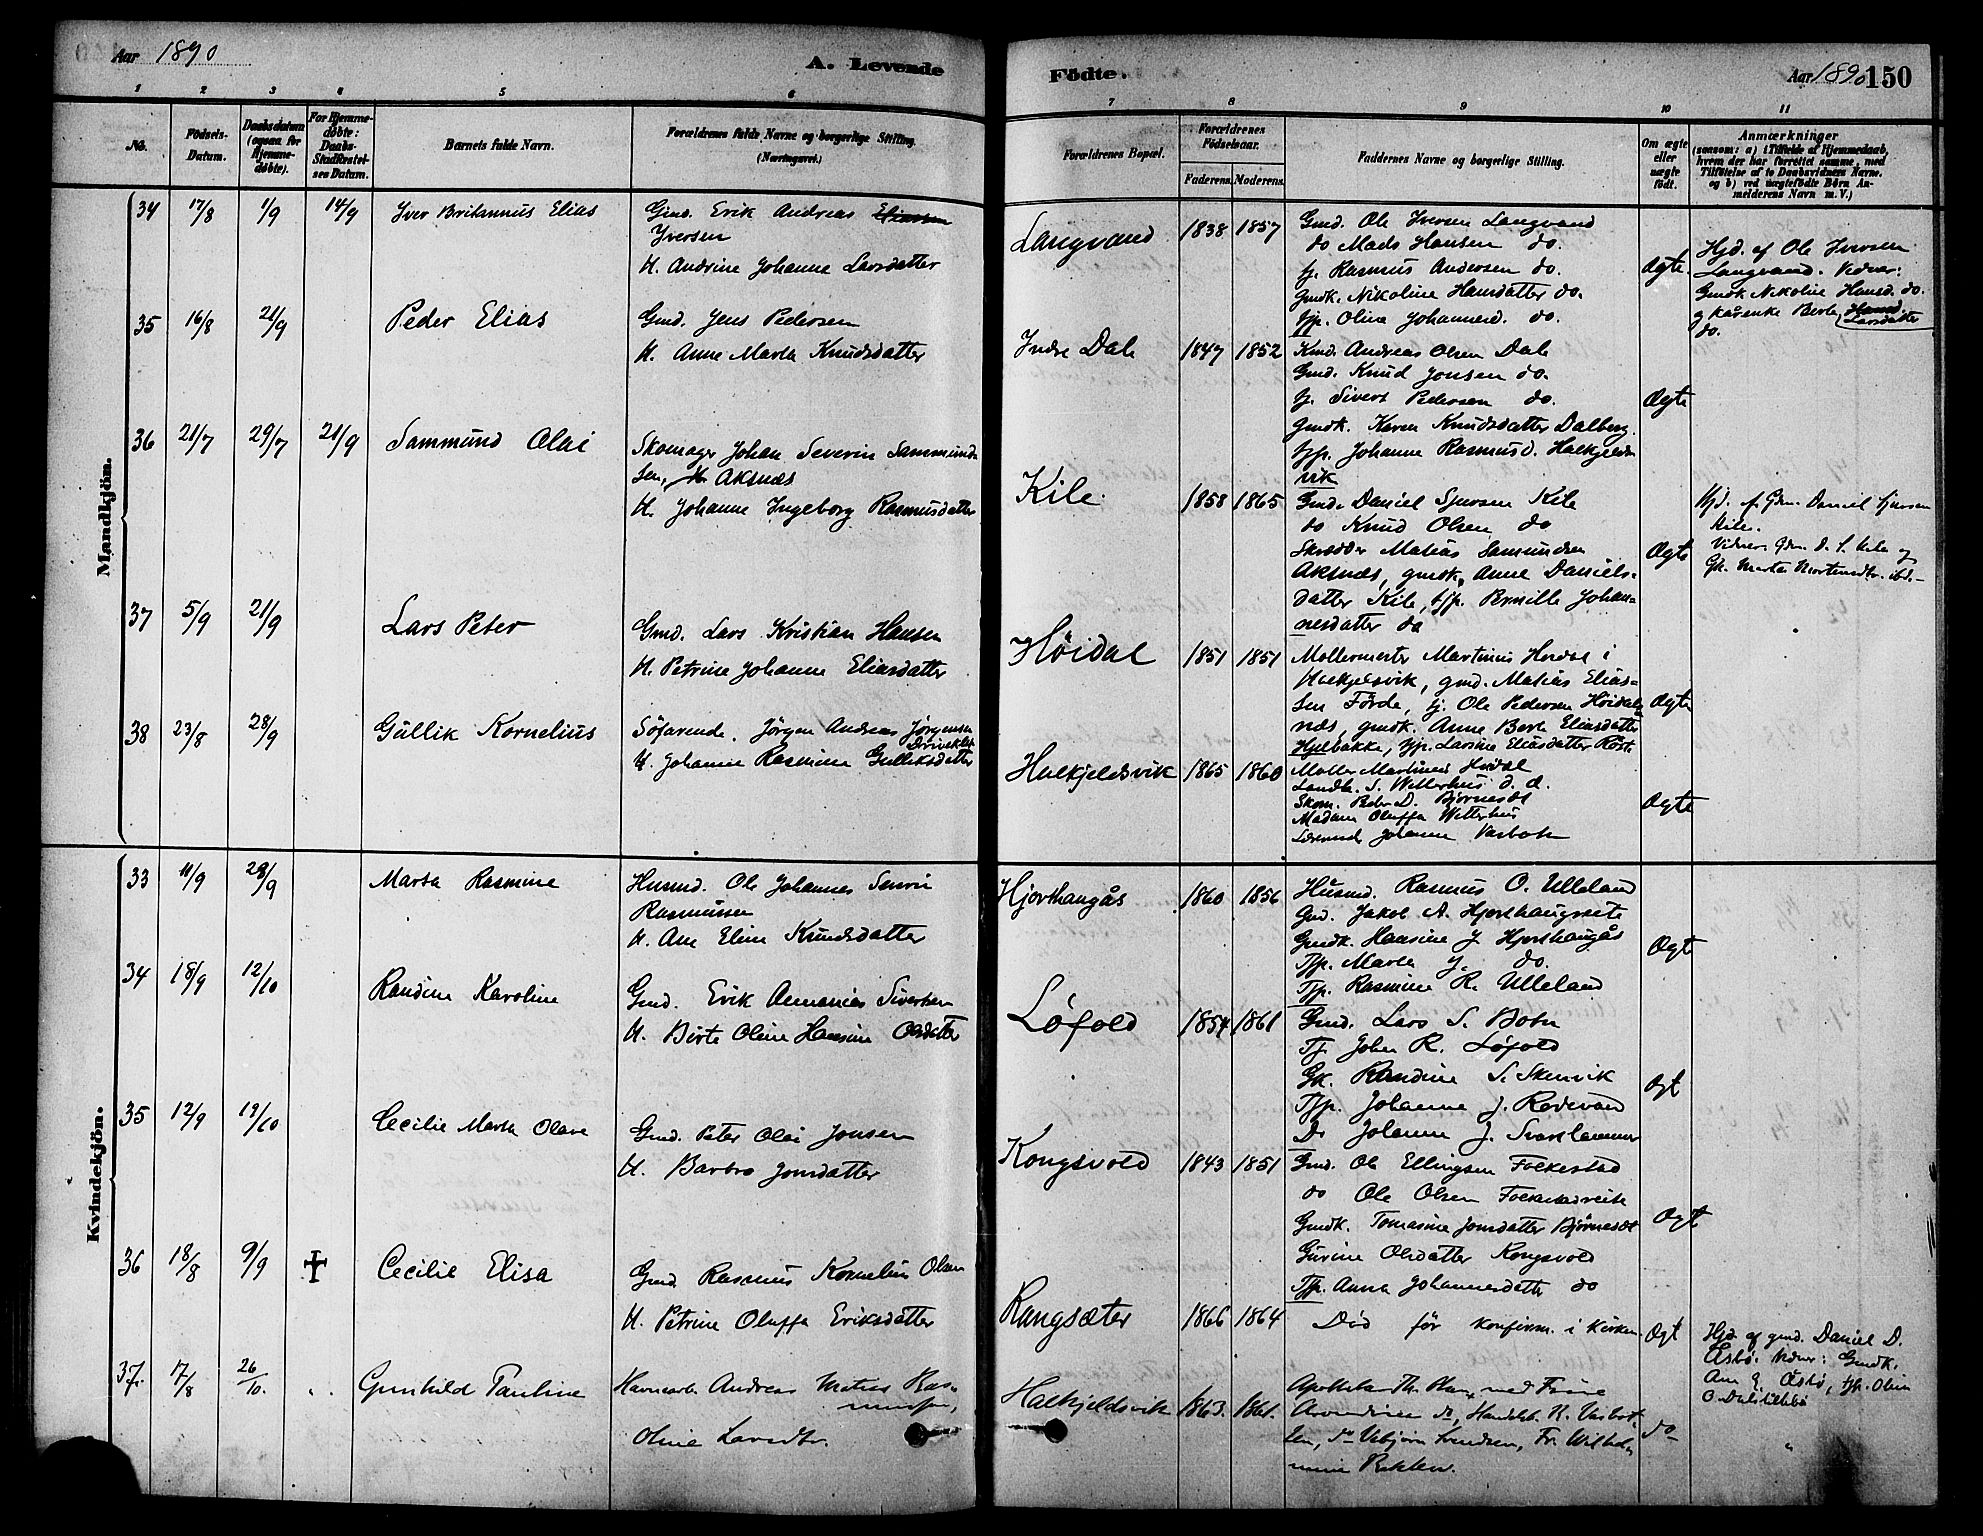 Aar 1890
A. Levende
Födte.
Aar 1890 150
1 2 3 4 5 6 7 8 9 10 11
No.
Födsels-Datum.
Daabsdatum (ogsaa for Hjemme-döbte).
For Hjemme-döbte: Daabs-Stadfæstel-ses Datum.
Barnets fulde Navn.
Forældrenes fulde Navne og borgerlige Stilling.
(Næringsvei.)
Forældrenes Bopæl.
Forældrenes Födselsaar.
Faderens. Moderens.
Faddernes Navne og borgerlige Stilling.
Om ægte eller uægte födt.
Anmærkninger
(saasom: a) i Tilfælde af Hjemmedaab, hvem der har forrettet samme, med Tilföielse af to Daabsvidners Navne. og b) ved uægtefödte Börn An-melderens Navn m. V.)
Mandkjön.
34 17/8 1/9 14/9 Iver Britannus Elias
Gmd. Erik Andreas Eliassen
Iversen
H. Andrine Johanne Larsdatter
Langvand 1838 1857
Gmd. Ole Iversen Langvand
do Mads Hansen do.
fj. Rasmus Andersen do.
Gmdk. Nikoline Hansdatter do.
fjp. Oline Johannesd. do.
Ægte.
Hjd. af Ole Iversen
Langvand. Vidner:
Gmdk Nikoline Hansd. do.
og kårenke Berte Hansd
Larsdatter
do.
35 16/8 21/9 Peder Elias
Gmd. Jens Pedersen
H. Anne Marta Knudsdatter
Indre Dale 1847 1852
Kmd. Andreas Olsen Dale
Gmd. Knud Jonsen do.
fj. Sivert Pedersen do.
Gmdk. Karen Knudsdatter Dalberg.
fjp. Johanne Rasmusd. Halkjelds
vik
Ægte
36 21/7 29/7 21/9 Sammund Olai
Skomager Johan Severin Sammund-
sen, Aksnæs
H. Johanne Ingeborg Rasmusdatter
Kile. 1858 1865
Gmd. Daniel Sjursen Kile
do Knud Olsen do
Skrædder Matias Samundsen
Aksnæs, gmdk. Anne Daniels-
datter Kile, fjp. Pernille Johan-
nesdatter do
Ægte
Hjd. af Gdm. Daniel Sjursen
Kile.
Vidner: Gdm. D. S. Kile og
Gk. Marta Mortensdtr. ibd.
37 5/9 21/9 Lars Peter
Gmd. Lars Kristian Hansen
H. Petrine Johanne Eliasdatter
Høidal 1851 1851
Møllermester Martinus Hovdal i
Halkjelsvik, gmd. Matias Elias-
sen Førde, fj. Ole Pedersen Høidal
næs, gmdk. Anne Berte Eliasdatter
Hjelbakke, fjp. Larsine Eliasdatter Røst
Ægte
38 23/8 28/9 Gullik Kornelius
Söfarende. Jörgen Andreas Jørgensen
Driveklet
H. Johanne Rasmine Gulliksdatter
Halkjeldsvik 1865 1860
Møller Martinus Hovdal
Landh. S. Witterhus d. æ.
Skom. Peder D. Bjørnesæt
Madam Oluffa Witterhus
Johanne Vasbotn
Ægte
Kvindekjön.
33 11/9 28/9 Marta Rasmine
Husmd. Ole Johannes Severin
Rasmussen
H. Ane Eline Knudsdatter
Hjorthaugås 1860 1856
Husmd. Rasmus O. Ulleland
Gmd. Jakob A. Hjorthaugreite
Gmdk. Hansine J Hjorthaugås
Tjp. Marte J. do.
Tjp. Rasmine R. Ulleland
Ægt
34 18/9 12/10 Randine Karoline
Gmd. Erik Annanias Sivertsen
H. Birte Oline Hansine Olsdatter
Løfold 1854 1861
Gmd. Lars S. Botn
Tj. Johan R. Løfold
Gk. Randine S. Stenvik
Tjp. Johanne J. Rødevand
Do Johanne J. Svartlammer
Ægt
35 12/9 19/10 Cecilie Marta Olave
Gmd. Peter Olai Jonsen
H. Barbro Jonsdatter
Kongsvold 1843 1851
Gmd. Ole Ellingsen Folkestad
do Ole Olsen Folkestadreite
Gmdk. Tomasine Jonsdatter Bjørnesæt
Gurine Olsdatter Kongsvold
Tjp. Anna Johannesdatter do
Ægt
36 18/8 9/9 ✝ Cecilie Elisa
Gmd Rasmus Kornelius Olsen
H. Petrine Oluffa Eriksdatter
Rangsæter 1866 1864
Död för konfirm. i Kirken
Ægt
Hjd. af gmd. Daniel D.
Åsbø. Vidner: Gmdk.
Ane E. Åsbø, tjp. Oline
O. Dalstilbø
37. 17/8 26/10. „ Gunhild Pauline
Havnearb. Andreas Matias Ras-
mussen,
Oline Larsdtr.
Halkjeldsvik 1863. 1861.
Apotheker Th. med Frue
do, Handelsb. H. Vasbot-
ten, do Vebjørn Svendsen, Fr. Wilhel-
mine
do
„